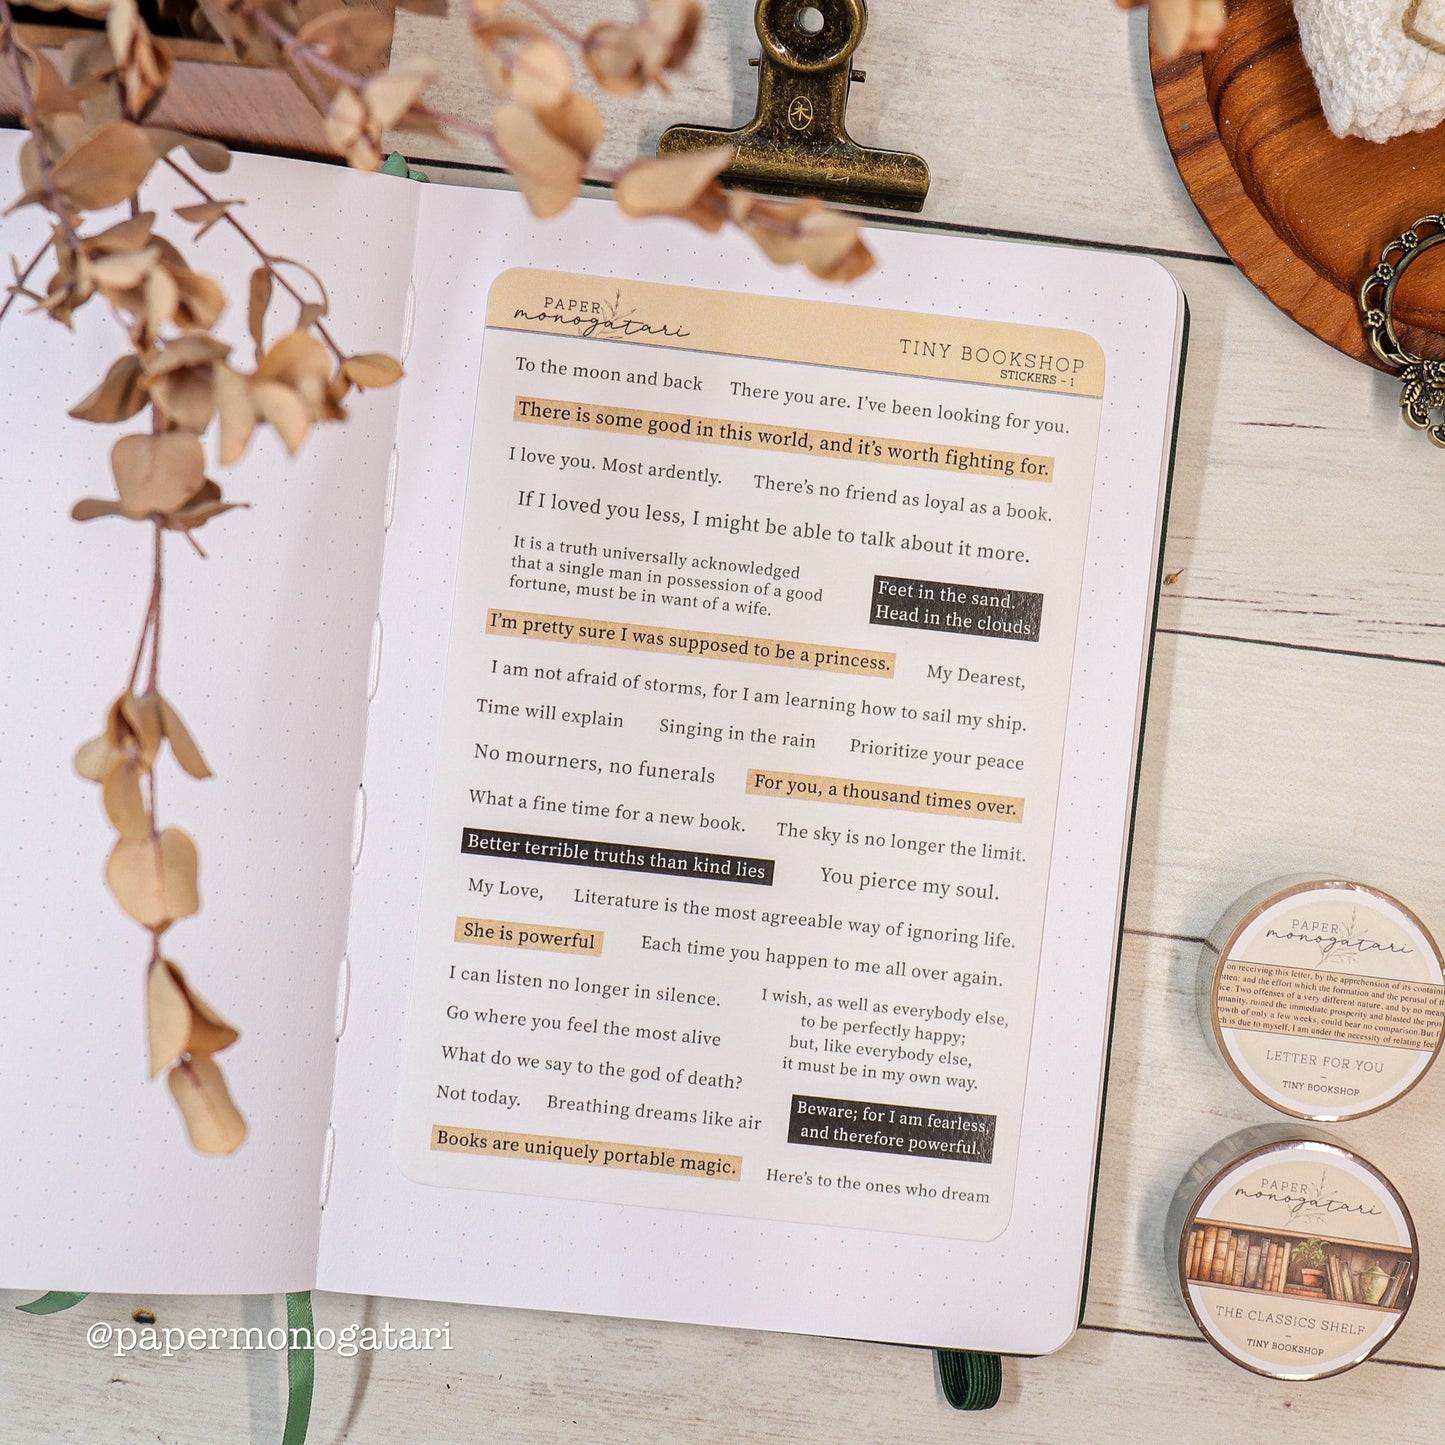 PAPER
monogatari
TINY BOOKSHOP
STICKERS - 1
To the moon and back
There you are. I've been looking for you.
There is some good in this world, and it's worth fighting for.
I love you. Most ardently.
There's no friend as loyal as a book.
If I loved you less, I might be able to talk about it more.
It is a truth universally acknowledged
that a single man in possession of a good
fortune, must be in want of a wife.
Feet in the sand.
Head in the clouds.
I'm pretty sure I was supposed to be a princess.
My Dearest,
I am not afraid of storms, for I am learning how to sail my ship.
Time will explain
Singing in the rain
Prioritize your peace
No mourners, no funerals
For you, a thousand times over.
What a fine time for a new book.
The sky is no longer the limit.
Better terrible truths than kind lies
You pierce my soul.
My Love,
Literature is the most agreeable way of ignoring life.
She is powerful
Each time you happen to me all over again.
I can listen no longer in silence.
I wish, as well as everybody else,
to be perfectly happy;
but, like everybody else,
it must be in my own way.
Go where you feel the most alive
What do we say to the god of death?
Not today.
Breathing dreams like air
Beware; for I am fearless,
and therefore powerful.
Books are uniquely portable magic.
Here's to the ones who dream
木
PAPER
monogatari
on receiving this letter, by the apprehension of its
and the effort which the formation and the perusal of
Two offenses of a very different nature, and by no
ruined the immediate prosperity and blasted the
of only a few weeks, could bear no comparison. But
is due to myself, I am under the necessity of relating
LETTER FOR YOU
–
TINY BOOKSHOP
PAPER
monogatari
THE CLASSICS SHELF
–
TINY BOOKSHOP
@papermonogatari